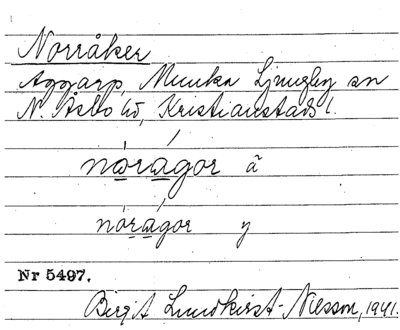 Norråker
Aggarp, Munka Ljungby sn
N. Åsbo hd, Kristianstads l.
nórágor ä
nórágor y
Nr 5497.
Birgit Lundkvist-Nilsson, 1941.